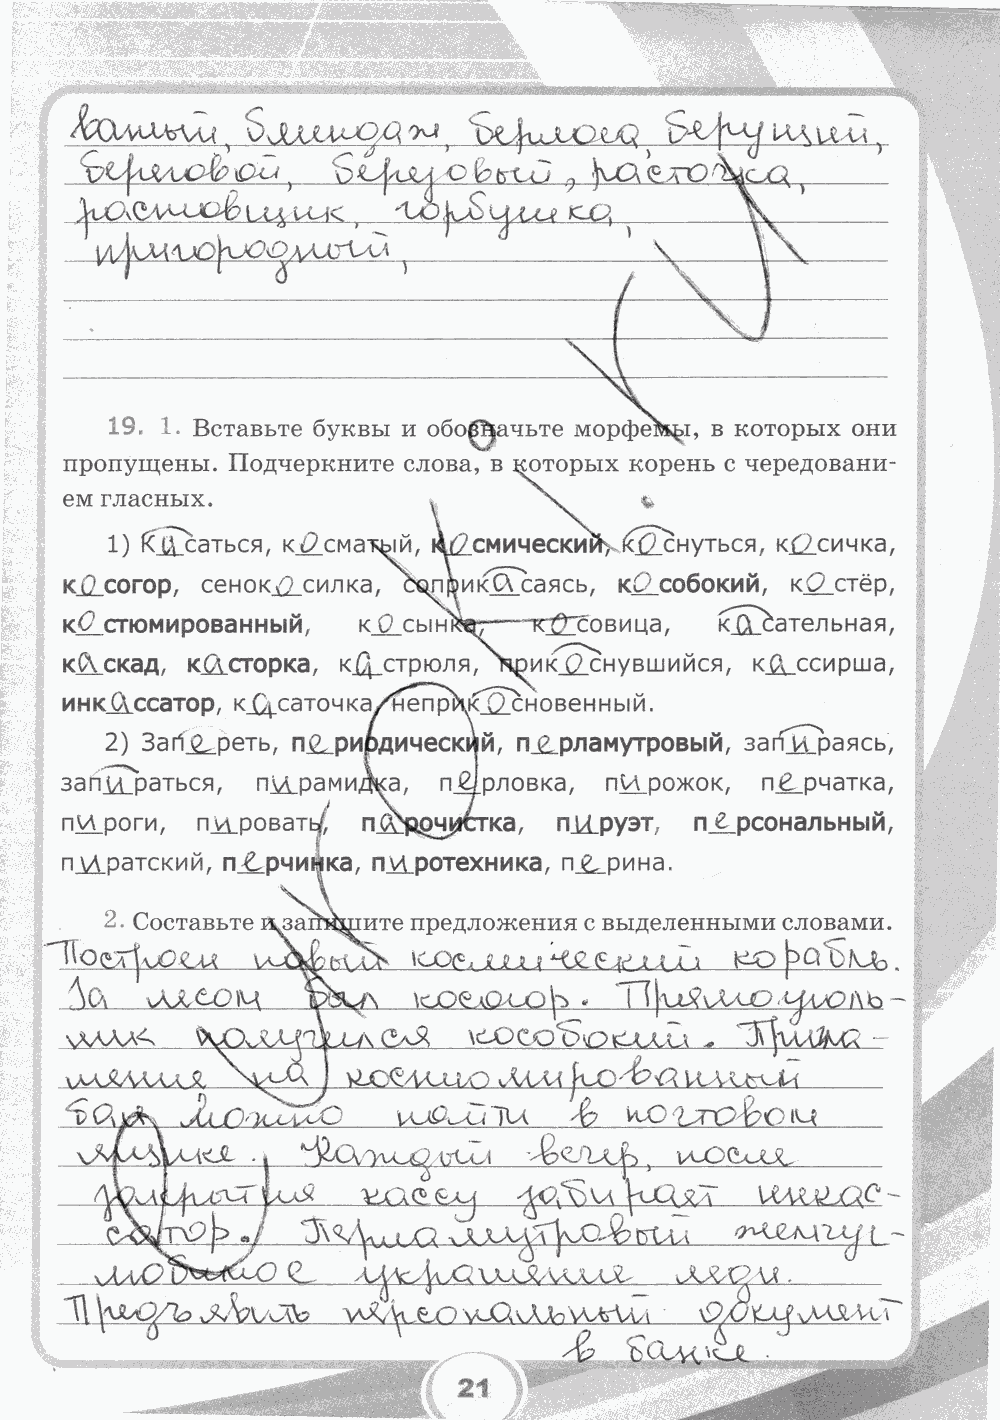 ванный, блиндаж, берлога, берущий,
береговой, березовый, расточка,
ростовщик, горбушка,
пригородный,
19. 1. Вставьте буквы и обозначьте морфемы, в которых они
пропущены. Подчеркните слова, в которых корень с чередовани-
ем гласных.
1) Касаться, косматый, космический, коснуться, косичка,
косогор, сенокосилка, соприкасаясь, кособокий, костёр,
костюмированный, косынка, косовица, касательная,
каскад, касторка, кастрюля, прикоснувшийся, кассирша,
инкассатор, касаточка, неприкосновенный.
2) Запереть, периодический, перламутровый, запираясь,
запираться, пирамидка, перловка, пирожок, перчатка,
пироги, пировать, парочистка, пируэт, персональный,
пиратский, перчинка, пиротехника, перина.
2. Составьте и запишите предложения с выделенными словами.
Построен новый космический корабль.
За лесом был косогор. Прямоуголь-
ник получился кособокий. Пригла-
шение на костюмированный
бал можно найти в почтовом
ящике. Каждый вечер, после
закрытия кассу забирает инкас-
сатор. Перламутровый жемчуг-
любимое украшение леди.
Предъявить персональный документ
в банке.
21
urokI.ru